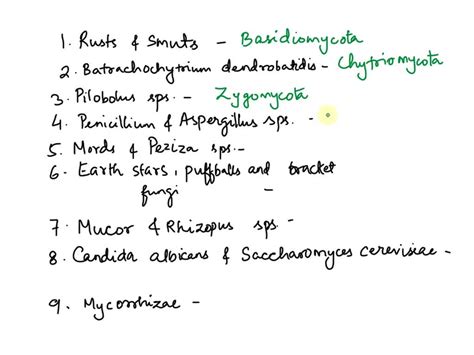 1. Rusts & Smuts - Basidiomycota
2. Batrachochytrium dendrobatidis - Chytriomycota
3. Pilobolus sps. - Zygomycota
4. Penicillium & Aspergillus sps. -
5. Morels & Peziza sps. -
6. Earth stars, puffballs and bracket
fungi -
7. Mucor & Rhizopus sps -
8. Candida albicans & Saccharomyces cerevisiae -
9. Mycorrhizae -